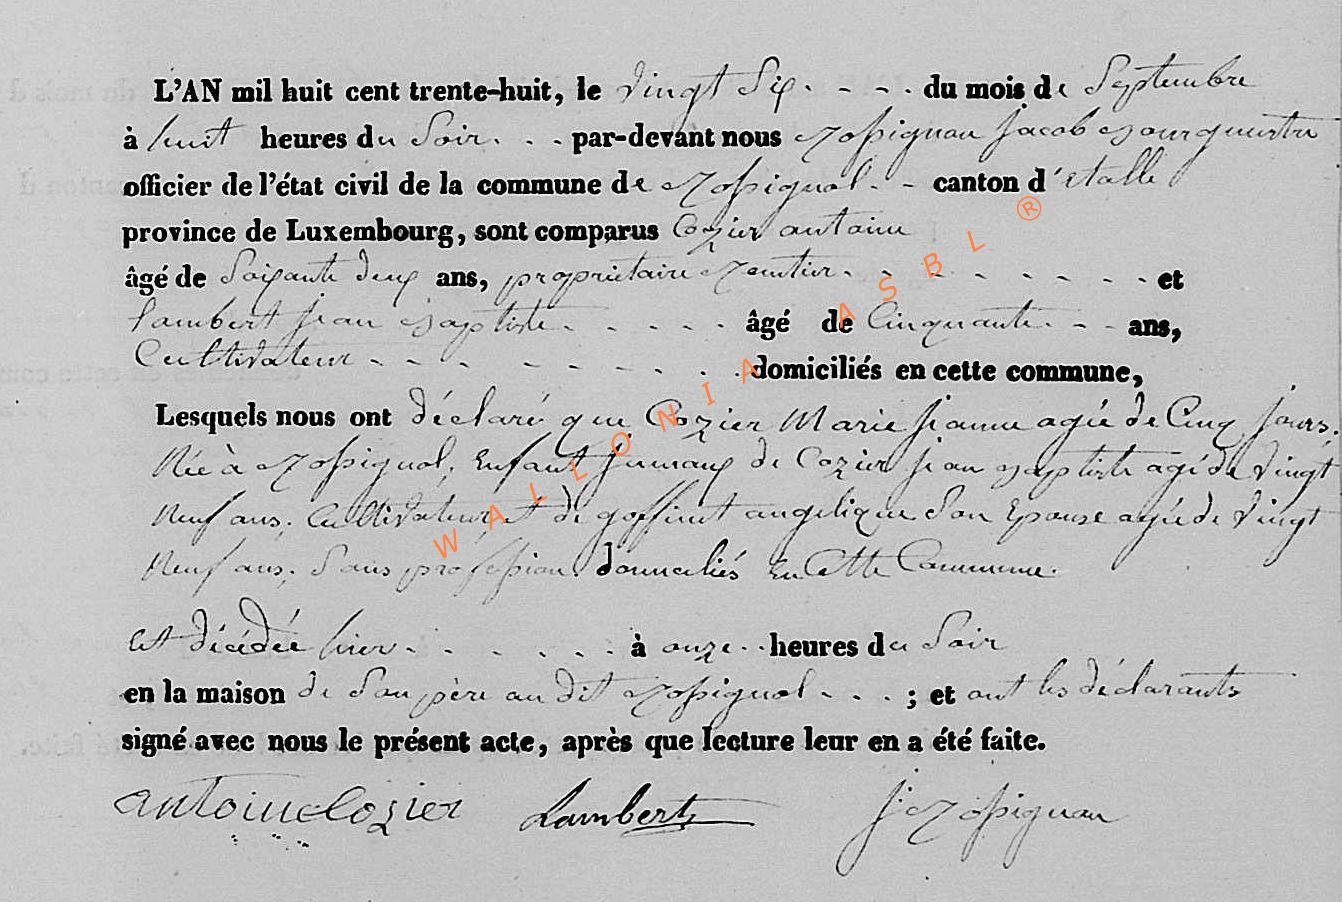 L'AN mil huit cent trente-huit, le vingt Six . - - . du mois de Septembre
à huit heures du Soir. . . par-devant nous Rossignon Jacob Bourguestre
officier de l'état civil de la commune de Rossignol. - canton d'etalle
province de Luxembourg, sont comparus Cozier antoine
âgé de Soixante deux ans, propriétaire Rentier. - - - - - - et
Lambert Jean Baptiste . . . . . âgé de Cinquante. - - ans,
Cultivateur - - - - - - . . domiciliés en cette commune,
Lesquels nous ont déclaré que Cozier Marie Jeanne agée de Cinq jours,
Née à Rossignol, Enfant jumeaux de Cozier Jean Baptiste agé de Vingt
Neuf ans, Cultivateur, et de goffinet angelique Son Epouse agée de Vingt
Neuf ans, Sans profession, domiciliés En Cette Commune.
Est décédée hier . . . . . . à onze . . heures du Soir
en la maison de Son père au dit Rossignol - . . ; et ont les déclarants
signé avec nous le présent acte, après que lecture leur en a été faite.
antoine Cozier Lambert J. Rossignon
WALLONIA ASBL ®